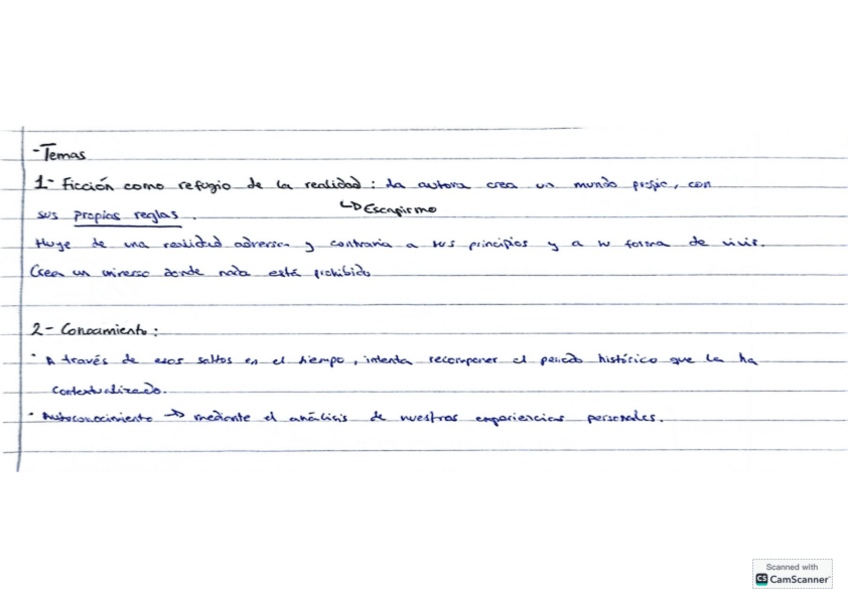 -Temas
1- Ficción como refugio de la realidad: La autora crea un mundo propio, con
↳ Escapismo
sus propias reglas.
Huye de una realidad adversa y contraria a sus principios y a su forma de vivir.
Crea un universo donde nada está prohibido
2- Conocimiento:
· A través de esos saltos en el tiempo, intenta recomponer el periodo histórico que la ha
contextualizado.
· Autoconocimiento → mediante el análisis de nuestras experiencias personales.
Scanned with
CS CamScanner